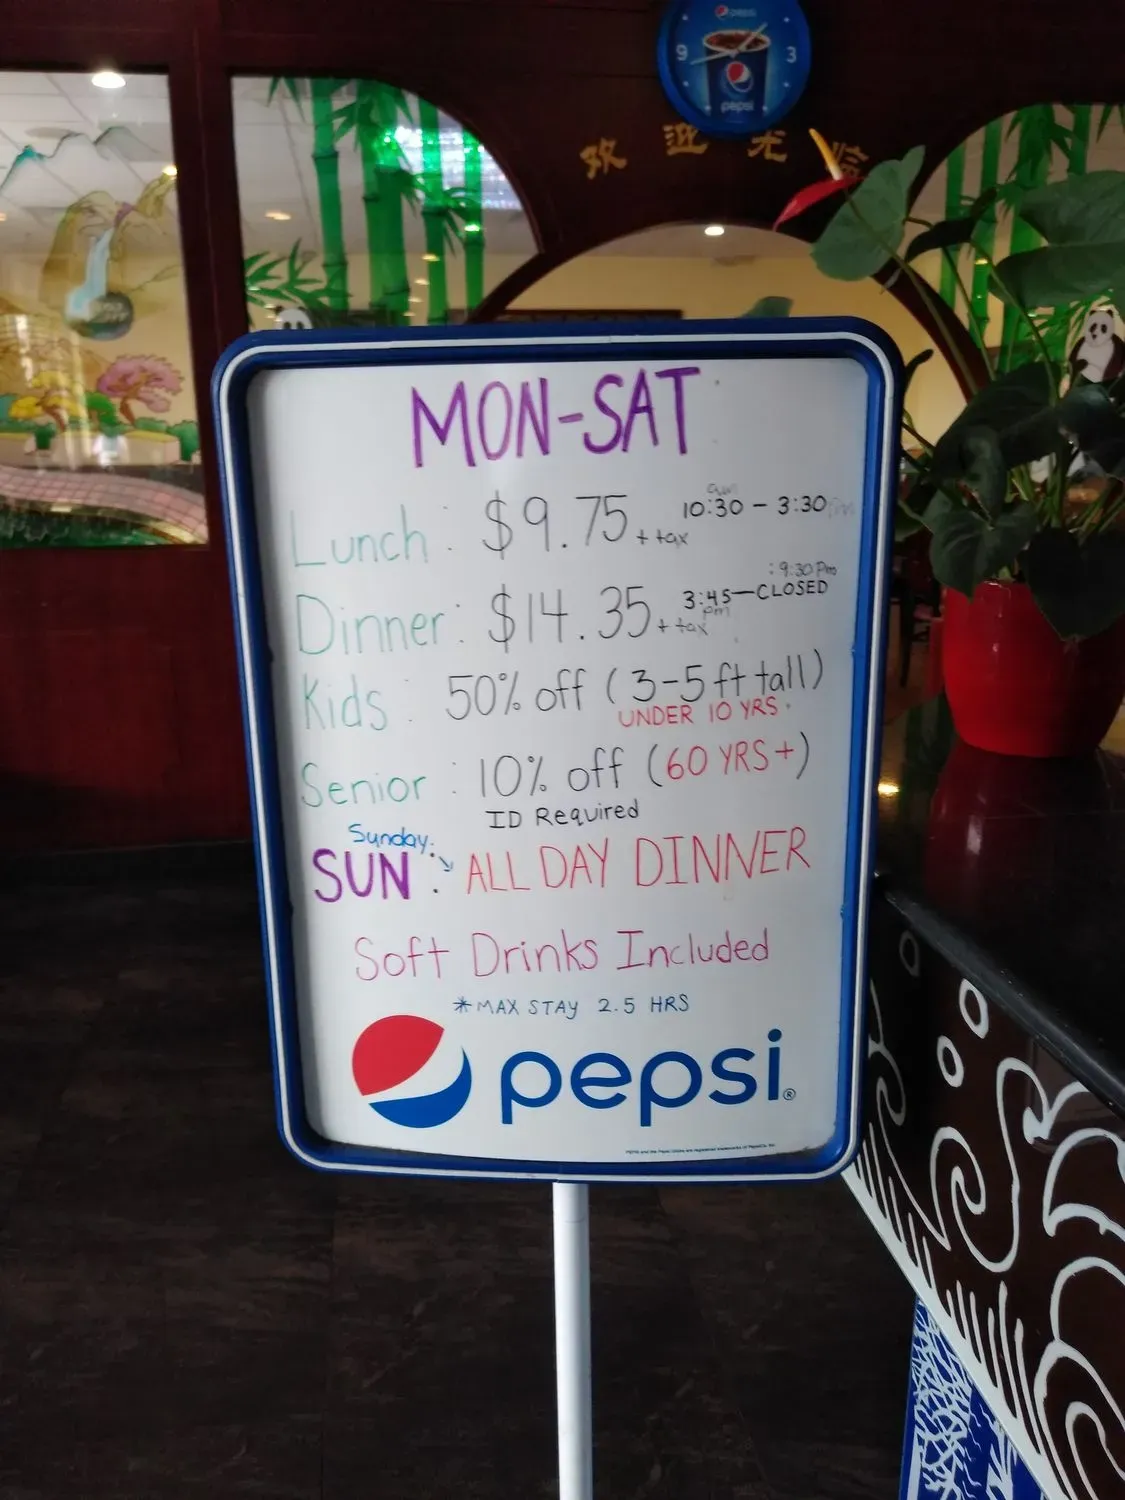 pepsi
9 3
pepsi
欢迎光临
MON-SAT
Lunch : $9.75 + tax 10:30 am - 3:30 pm
Dinner : $14.35 + tax 3:45 pm — CLOSED : 9:30 Pm
Kids : 50% off (3-5 ft tall)
UNDER 10 YRS.
Senior : 10% off (60 YRS+)
ID Required
Sunday:
SUN : ALL DAY DINNER
Soft Drinks Included
*MAX STAY 2.5 HRS
pepsi®